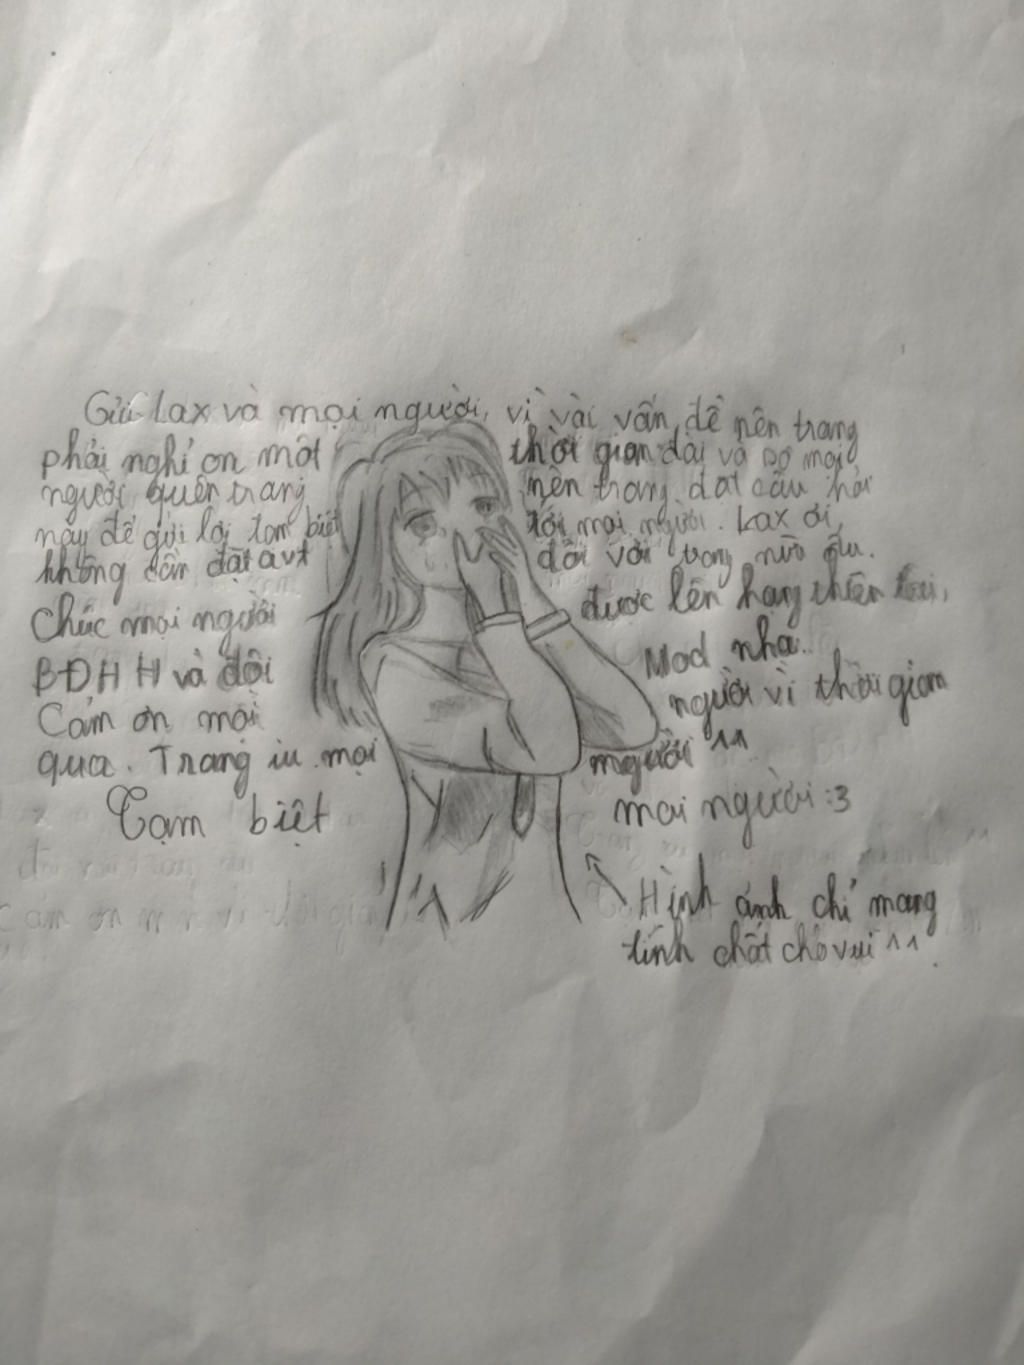 Gửi Lax và mọi người, vì vài vấn đề nên trang
phải nghỉ on một thời gian dài và sợ mọi
người quên trang nên trang đặt câu hỏi
này để gửi lời tạm biệt tới mọi người. Lax ơi,
không cần đặt avt đôi với trang nữa đâu.
Chúc mọi người được lên hạng thiên tài,
BĐHH và đội Mod nha.
Cảm ơn mọi người vì thời gian
qua. Trang iu mọi người ^^
Tạm biệt mọi người :3
Hình ảnh chỉ mang
tính chất cho vui ^^.